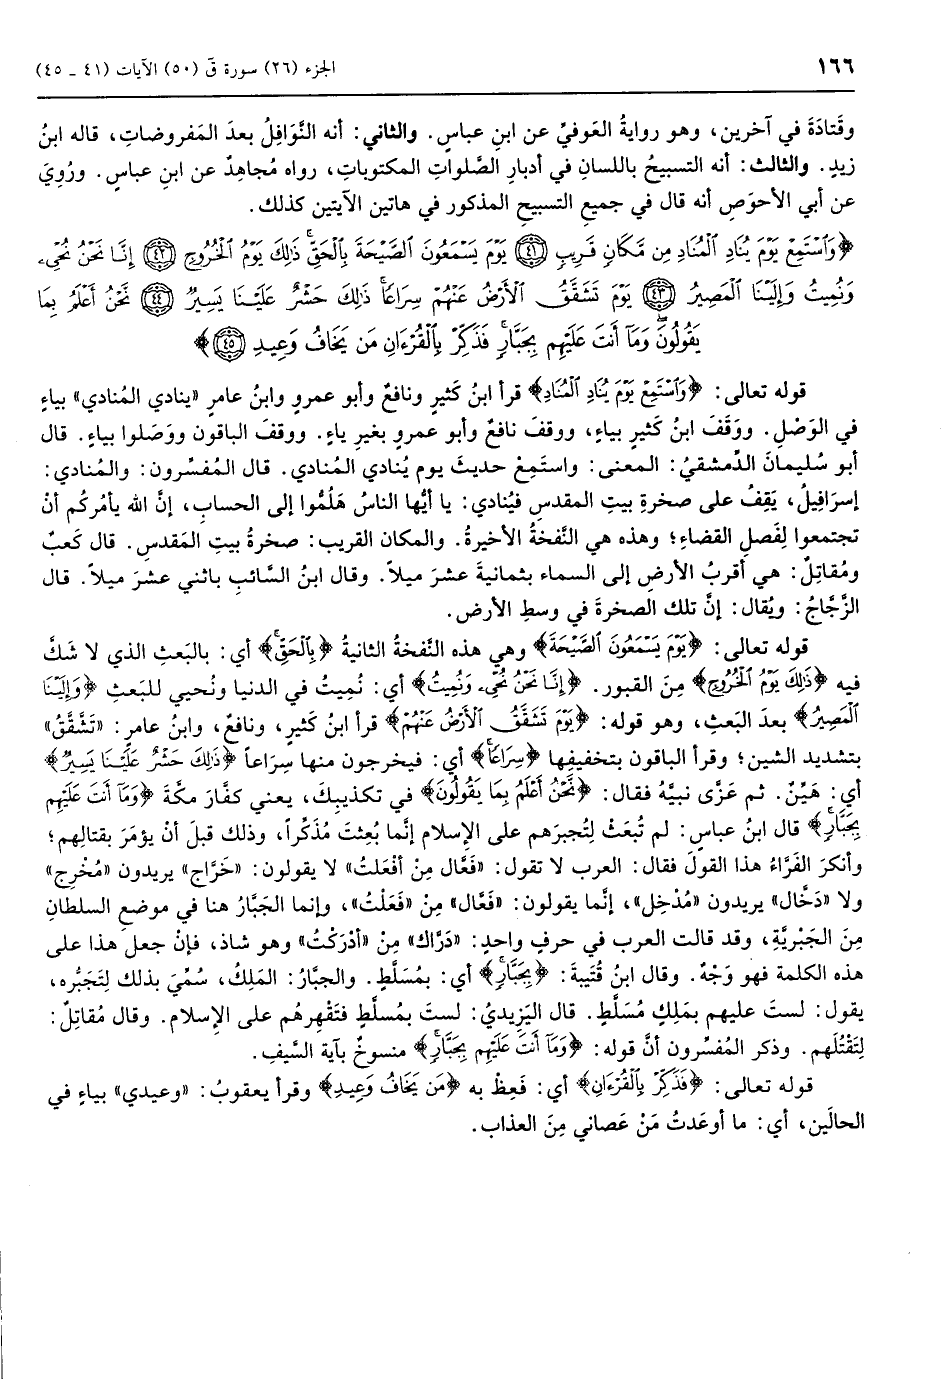 ١٦٦ الجزء (٢٦) سورة قۤ (٥٠) الآيات (٤١ ـ ٤٥)
وقَتادَةَ في آخرين، وهو روايةُ العَوفيِّ عن ابنِ عباسٍ. والثاني: أنه النَّوَافِلُ بعدَ المَفروضاتِ، قاله ابنُ
زيدٍ. والثالث: أنه التسبيحُ باللسان في أدبارِ الصَّلواتِ المكتوباتِ، رواه مُجاهِدٌ عن ابنِ عباس. ورُوِيَ
عن أبي الأحوَصِ أنه قال في جميعِ التسبيح المذكور في هاتين الآيتين كذلك.
﴿وَٱسۡتَمِعۡ يَوۡمَ يُنَادِ ٱلۡمُنَادِ مِن مَّكَانٖ قَرِيبٖ ۝٤١ يَوۡمَ يَسۡمَعُونَ ٱلصَّيۡحَةَ بِٱلۡحَقِّۚ ذَٰلِكَ يَوۡمُ ٱلۡخُرُوجِ ۝٤٢ إِنَّا نَحۡنُ نُحۡيِۦ
وَنُمِيتُ وَإِلَيۡنَا ٱلۡمَصِيرُ ۝٤٣ يَوۡمَ تَشَقَّقُ ٱلۡأَرۡضُ عَنۡهُمۡ سِرَاعٗاۚ ذَٰلِكَ حَشۡرٌ عَلَيۡنَا يَسِيرٞ ۝٤٤ نَّحۡنُ أَعۡلَمُ بِمَا
يَقُولُونَۖ وَمَآ أَنتَ عَلَيۡهِم بِجَبَّارٖۖ فَذَكِّرۡ بِٱلۡقُرۡءَانِ مَن يَخَافُ وَعِيدِ ۝٤٥﴾
قوله تعالى: ﴿وَٱسۡتَمِعۡ يَوۡمَ يُنَادِ ٱلۡمُنَادِ﴾ قرأ ابنُ كَثيرٍ ونافعٌ وأبو عمرو وابنُ عامرٍ «ينادي المُنادي» بياءٍ
في الوَصْلِ. ووَقَفَ ابنُ كَثيرٍ بياءٍ، ووقف نافعٌ وأبو عمرو بغيرِ ياءٍ. ووقفَ الباقون ووَصَلوا بياءٍ. قال
أبو سُليمانَ الدِّمشقيُّ: المعنى: واستَمِعْ حديثَ يوم يُنادي المُنادي. قال المُفسِّرون: والمُنادي:
إسرَافيلُ، يَقِفُ على صخرةِ بيتِ المقدسِ فيُنادي: يا أيُّها الناسُ هَلُمُّوا إلى الحسابِ، إنَّ الله يأمُركم أنْ
تجتمعوا لِفَصلِ القضاءِ؛ وهذه هي النَّفخةُ الأخيرةُ. والمكان القريب: صخرةُ بيتِ المَقدسِ. قال كَعبٌ
ومُقاتِلٌ: هي أقربُ الأرضِ إلى السماء بثمانيةَ عشرَ ميلاً. وقال ابنُ السَّائبِ باثني عشرَ ميلاً. قال
الزَّجَّاجُ: ويُقال: إنَّ تلك الصخرةَ في وسطِ الأرض.
قوله تعالى: ﴿يَوۡمَ يَسۡمَعُونَ ٱلصَّيۡحَةَ﴾ وهي هذه النَّفخةُ الثانيةُ ﴿بِٱلۡحَقِّۚ﴾ أي: بالبَعثِ الذي لا شَكَّ
فيه ﴿ذَٰلِكَ يَوۡمُ ٱلۡخُرُوجِ﴾ مِنَ القبور. ﴿إِنَّا نَحۡنُ نُحۡيِۦ وَنُمِيتُ﴾ أي: نُميتُ في الدنيا ونُحيي للبَعثِ ﴿وَإِلَيۡنَا
ٱلۡمَصِيرُ﴾ بعدَ البَعثِ، وهو قوله: ﴿يَوۡمَ تَشَقَّقُ ٱلۡأَرۡضُ عَنۡهُمۡ﴾ قرأ ابنُ كَثيرٍ، ونافعٌ، وابنُ عامر: «تَشَّقَّقُ»
بتشديد الشين؛ وقرأ الباقون بتخفيفِها ﴿سِرَاعٗاۚ﴾ أي: فيخرجون منها سِرَاعاً ﴿ذَٰلِكَ حَشۡرٌ عَلَيۡنَا يَسِيرٞ﴾
أي: هَيِّنٌ. ثم عَزَّى نبيَّهُ فقال: ﴿نَّحۡنُ أَعۡلَمُ بِمَا يَقُولُونَ﴾ في تكذيبِكَ، يعني كفَّارَ مكَّةَ ﴿وَمَآ أَنتَ عَلَيۡهِم
بِجَبَّارٖۖ﴾ قال ابنُ عباسٍ: لم تُبعَثْ لِتُجبرَهم على الإسلام إنَّما بُعِثتَ مُذَكِّراً، وذلك قبلَ أنْ يؤمَرَ بقتالِهم؛
وأنكرَ الفَرَّاءُ هذا القولَ فقال: العرب لا تقول: «فَعَّال مِنْ أفْعَلتُ» لا يقولون: «خَرَّاج» يريدون «مُخْرِج»
ولا «دَخَّال» يريدون «مُدْخِل»، إنَّما يقولون: «فَعَّال» مِنْ «فَعَلْتُ»، وإنما الجَبَّارُ هنا في موضعِ السلطانِ
مِنَ الجَبْريَّةِ، وقد قالت العرب في حرفٍ واحدٍ: «دَرَّاك» مِنْ «أدْرَكْتُ» وهو شاذ، فإنْ جعل هذا على
هذه الكلمة فهو وَجْهٌ. وقال ابنُ قُتَيبةَ: ﴿بِجَبَّارٖۖ﴾ أي: بمُسَلَّطٍ. والجبَّارُ: المَلِكُ، سُمِّيَ بذلك لِتَجَبُّرِه،
يقول: لستَ عليهم بمَلِكٍ مُسَلَّطٍ. قال اليَزِيديُّ: لستَ بمُسلَّطٍ فتَقْهِرهُم على الإسلام. وقال مُقاتِلٌ:
لِتَقْتُلَهم. وذكر المُفسِّرون أنَّ قوله: ﴿وَمَآ أَنتَ عَلَيۡهِم بِجَبَّارٖۖ﴾ منسوخٌ بآية السَّيفِ.
قوله تعالى: ﴿فَذَكِّرۡ بِٱلۡقُرۡءَانِ﴾ أي: فَعِظْ به ﴿مَن يَخَافُ وَعِيدِ﴾ وقرأ يعقوبُ: «وعيدي» بياءٍ في
الحالَين، أي: ما أوعَدتُ مَنْ عَصاني مِنَ العذاب.